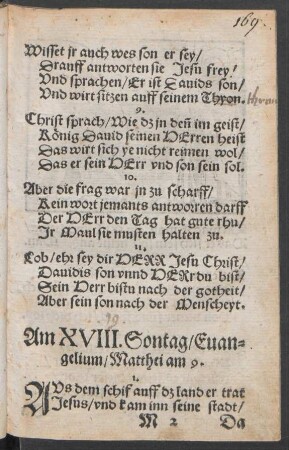 169
Wisset jr auch wes son er sey/
Drauff antworten sie Jesu frey/
Vnd sprachen/Er ist Dauids son/
Vnd wirt sitzen auff seinem Thron.
9.
Christ sprach/Wie dz jn deñ im geist/
König Dauid seinen HErren heist
Das wirt sich ye nicht reimen wol/
Das er sein HErr vnd son sein sol.
10.
Aber die frag war jn zu scharff/
Kein wort jemants antworren darff
Der HErr den Tag hat gute rhu/
Jr Maul sie musten halten zu.
11.
Lob/ehr sey dir HERR Jesu Christ/
Dauidis son vnnd HERr du bist/
Sein Herr bistu nach der gotheit/
Aber sein son nach der Menscheyt.
19.
Am XVIII. Sontag/Euan-
gelium/Matthei am 9.
1.
AVs dem schif auff dz land er trat
Jesus/vnd kam inn seine stadt/
M 2 Da